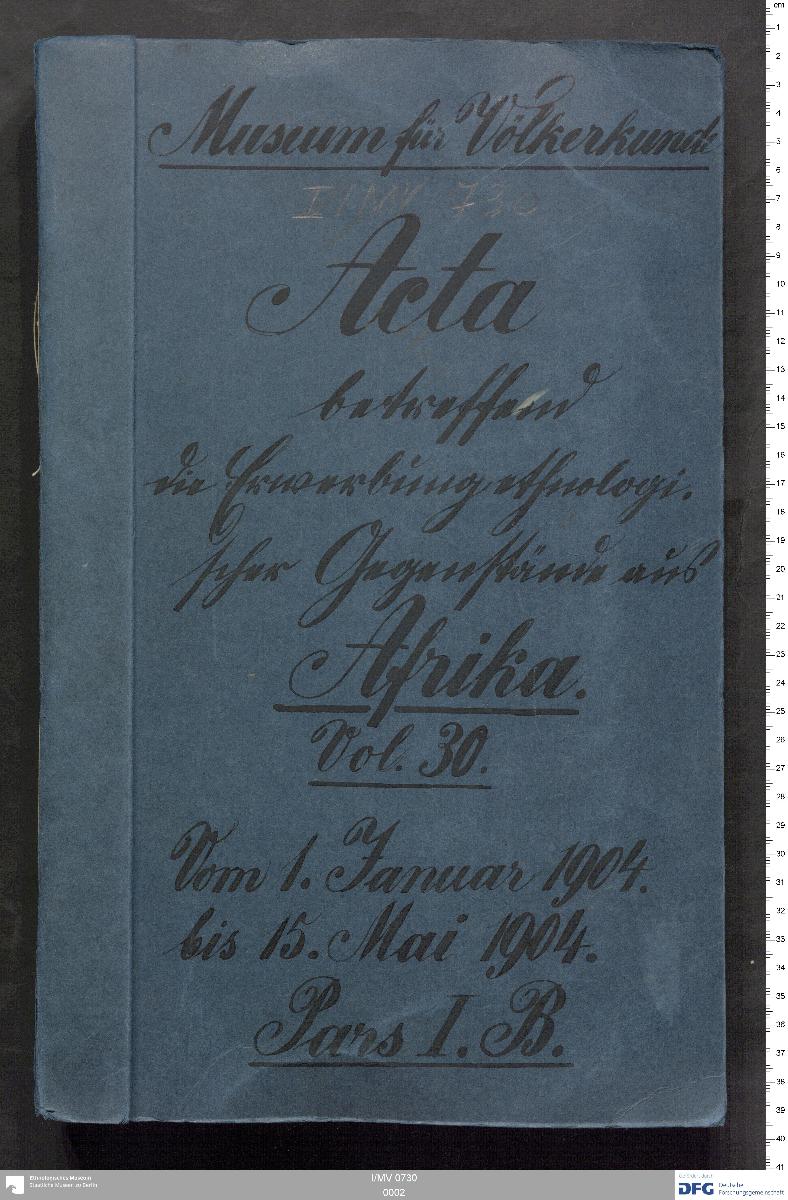 Museum für Völkerkunde
I/MV 730
Acta
betreffend
die Erwerbung ethnologi-
scher Gegenstände aus
Afrika.
Vol. 30.
Vom 1. Januar 1904.
bis 15. Mai 1904.
Pars I. B.
cm
1
2
3
4
5
6
7
8
9
10
11
12
13
14
15
16
17
18
19
20
21
22
23
24
25
26
27
28
29
30
31
32
33
34
35
36
37
38
39
40
41
Ethnologisches Museum
Staatliche Museen zu Berlin
I/MV 0730
0002
Gefördert durch
DFG Deutsche
Forschungsgemeinschaft